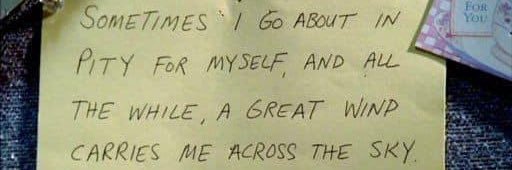 SOMETIMES I GO ABOUT IN
PITY FOR MYSELF, AND ALL
THE WHILE, A GREAT WIND
CARRIES ME ACROSS THE SKY.
FOR
YOU